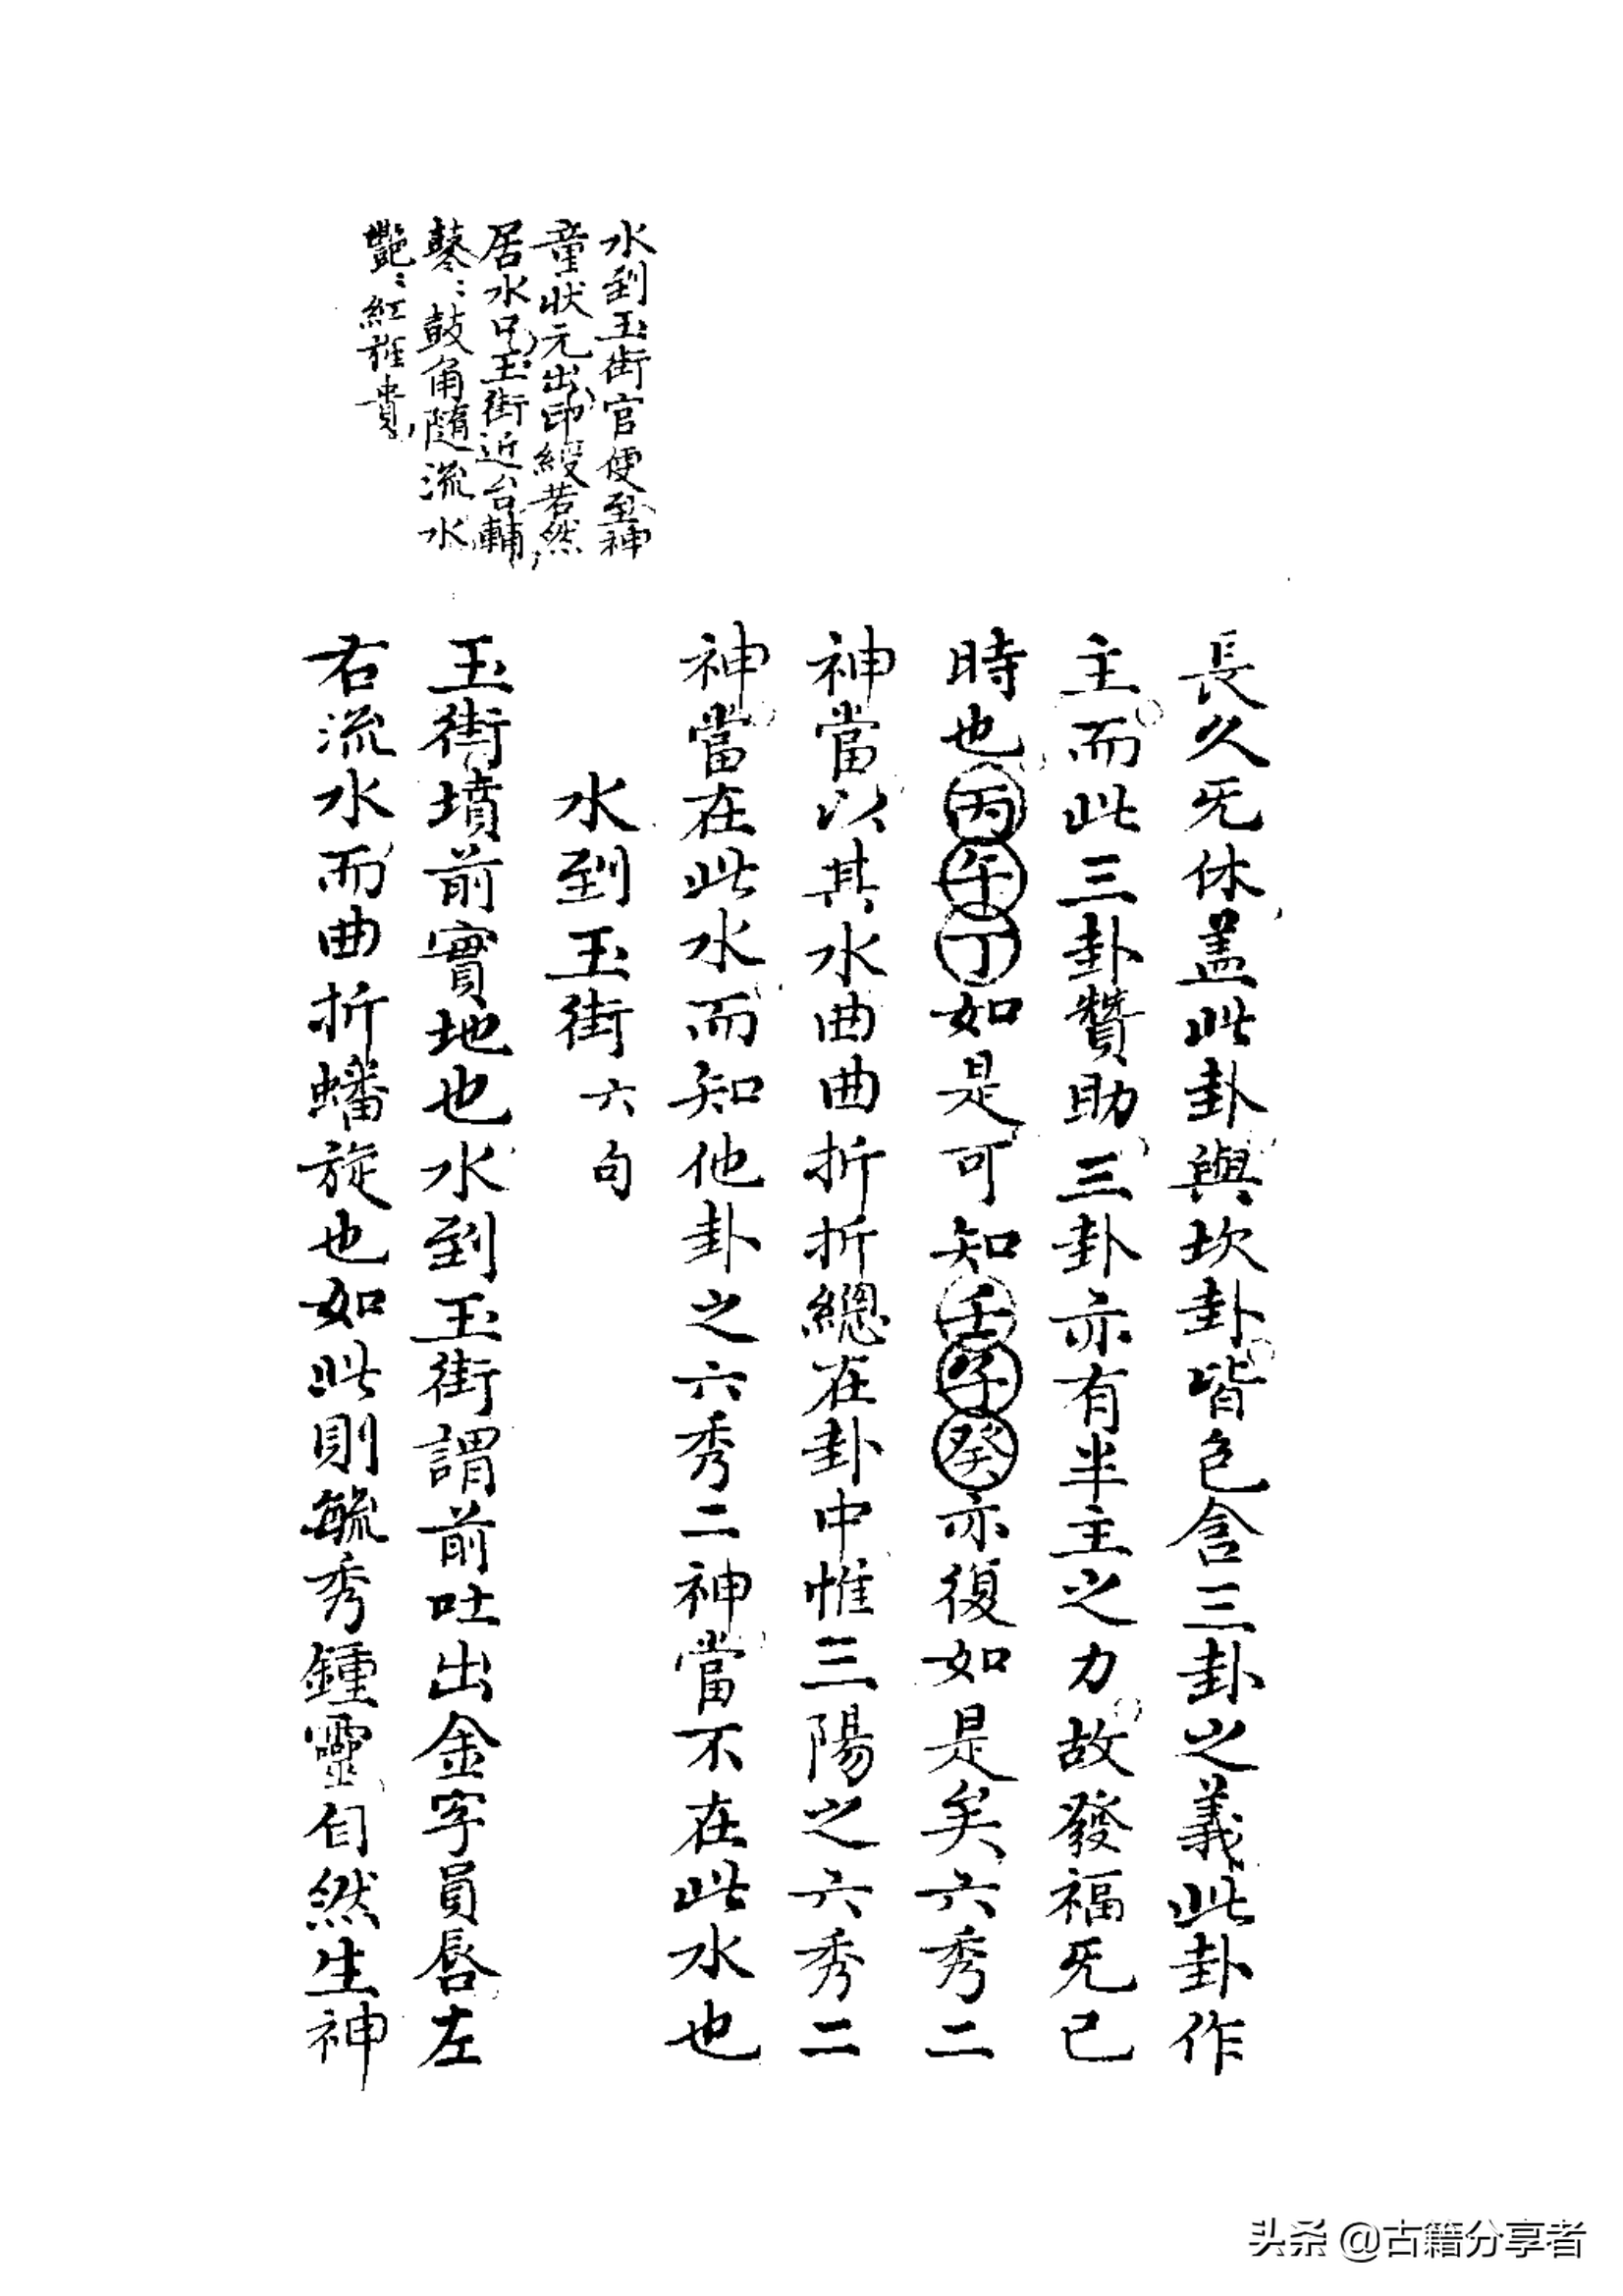 長久旡休盖此卦與坎卦皆包含三卦之義此卦作
主而此三卦贊助三卦亦有半主之力故發福旡已
時也丙午丁如是可知壬子癸亦復如是矣六秀二
神當以其水曲曲折折總在卦中惟三陽之六秀二
神當在此水而知他卦之六秀二神當不在此水也
水到玉街六句
水到玉街官便至神
童狀元出印綬若然
居水口玉街近台輔
鼕：鼓角隨流水
艷：紅旌貴
玉街墳前實地也水到玉街謂前吐出金字員唇左
右流水而曲折蟠旋也如此則毓秀鍾靈自然生神
头条 @古籍分享者